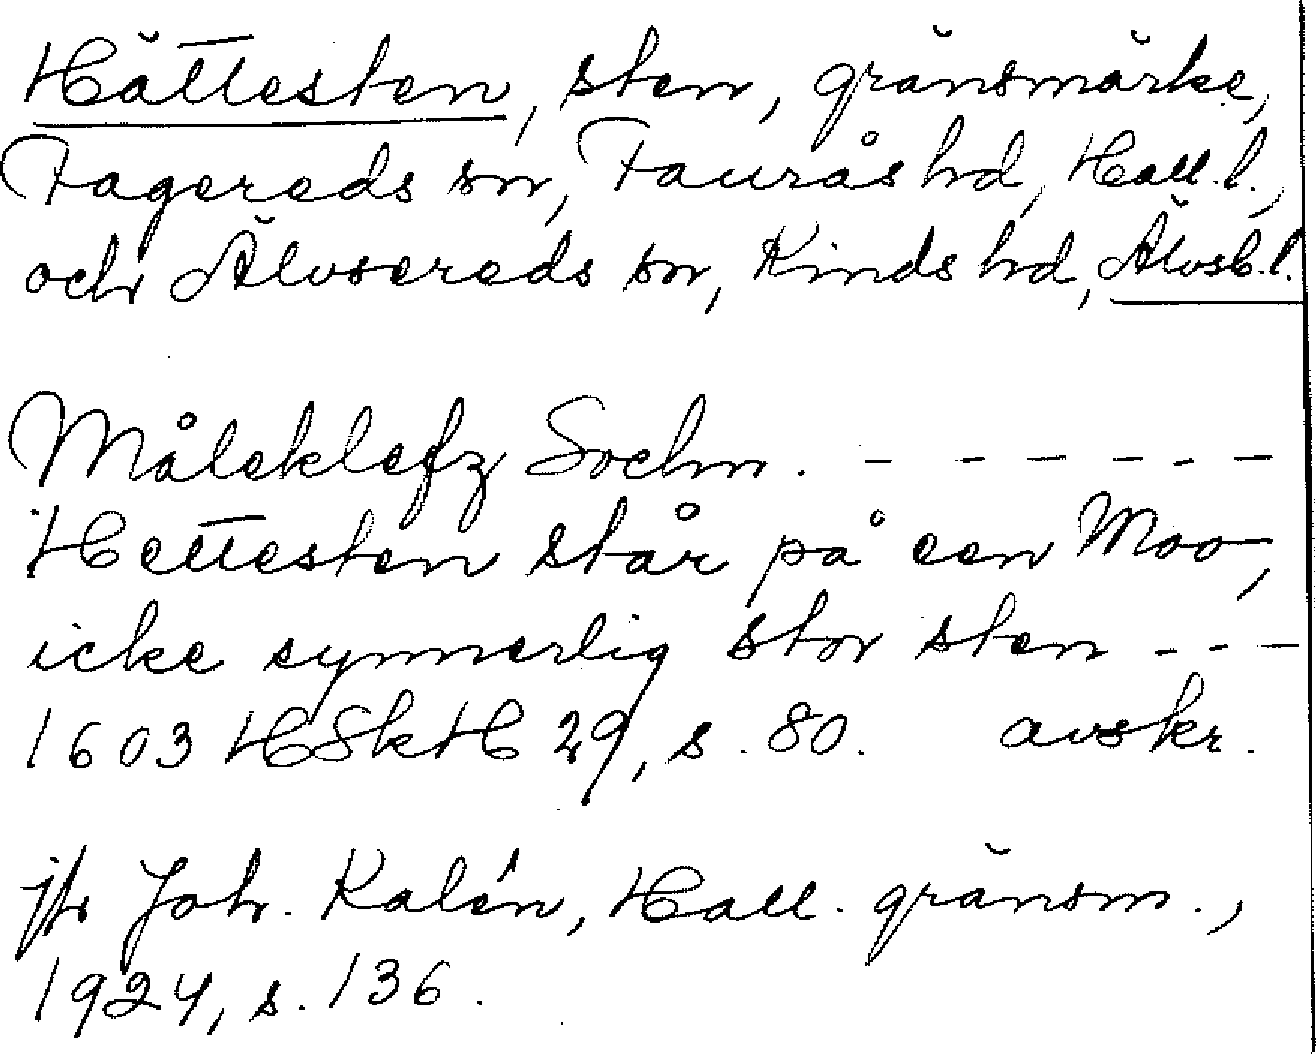 Hättesten, sten, gränsmärke,
Fagereds sn, Faurås hd, Hall. l.,
och Älvsereds sn, Kinds hd, Älvsb. l.
Måleklefz Sochn. - - - - - - -
Hettesten står på een Moo,
icke synnerlig stor sten - - -
1603 HSkH 29, s. 80. avskr.
jfr Joh. Kalén, Hall. gränsm.,
1924, s. 136.